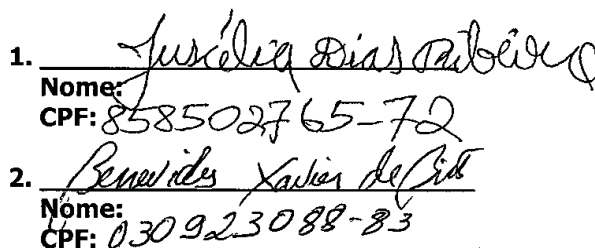 1. Juscélia Dias Ribeiro
Nome:
CPF: 858502765-72
2. Benevides Xavier de Brito
Nome:
CPF: 030923088-83